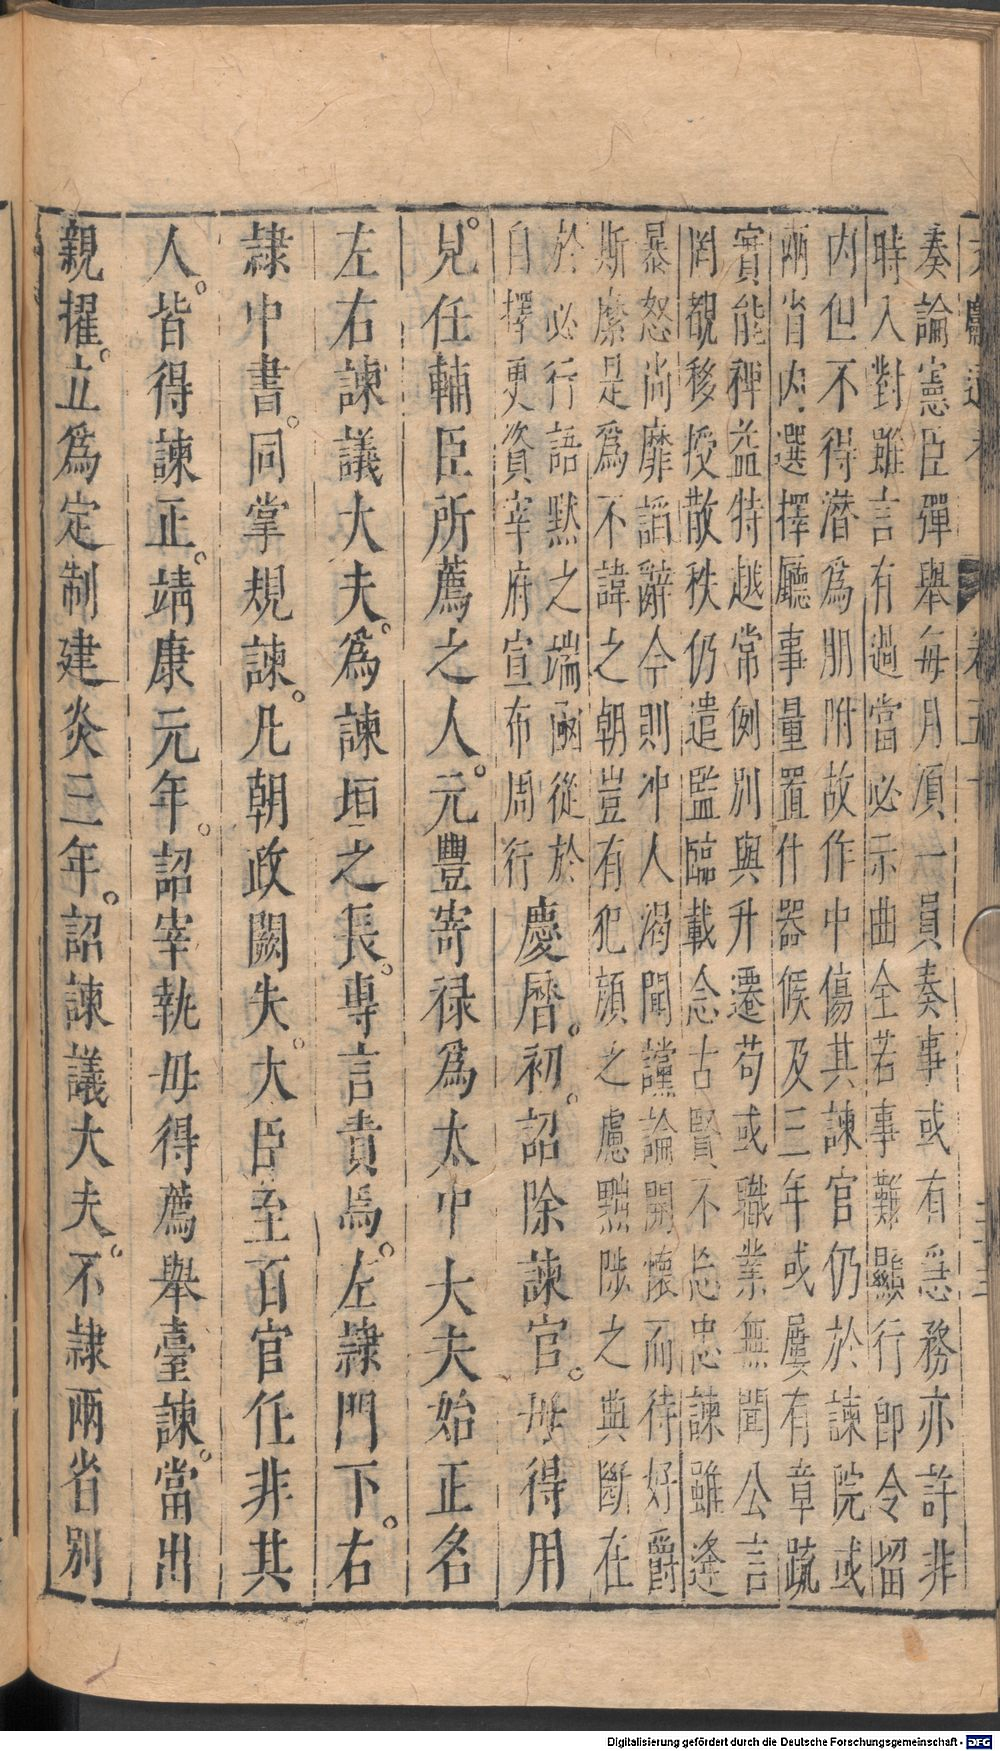 奏論憲臣彈舉每月須一員奏事或有急務亦許非
時入對雖言有過當必示曲全若事難顯行即令留
內但不得潛為朋附故作中傷其諫官仍於諫院或
兩省內選擇廳事量置什器候及三年或屢有章疏
實能裨益特越常例別與升遷苟或職業無聞公言
罔覩移授散秩仍遣監臨載念古賢不忘忠諫雖逢
暴怒尚靡謟辭今則冲人渴聞讜論開懷而待好爵
斯縻是為不諱之朝豈有犯顏之慮黜陟之典斷在
於必行語默之端囪從於
自擇更資宰府宣布周行
慶曆初詔除諫官毋得用
見任輔臣所薦之人元豐寄禄為太中大夫始正名
左右諫議大夫為諫垣之長專言責焉左隷門下右
隷中書同掌規諫凡朝政闕失大臣至百官任非其
人皆得諫正靖康元年詔宰執毋得薦舉臺諫當出
親擢立為定制建炎三年詔諫議大夫不隷兩省別
Digitalisierung gefördert durch die Deutsche Forschungsgemeinschaft - DFG